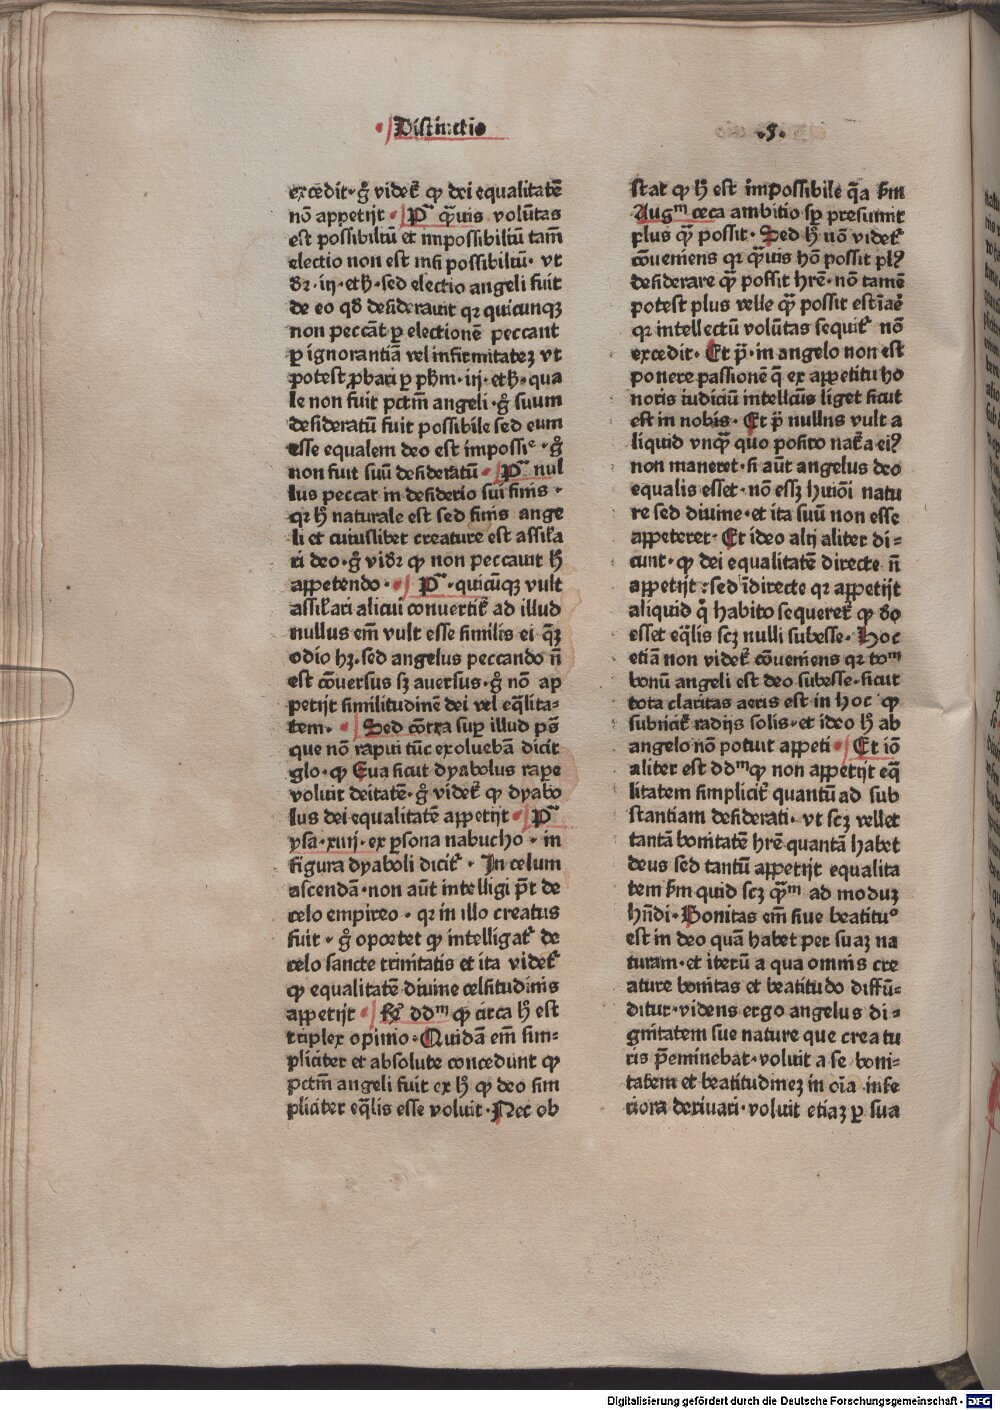 Distinctio
.5.
excedit· g̊ videt᷑ ꝙ dei equalitatē
nō appetijt · Pᵃ ꝙ̄uis volūtas
est possibiliū et impossibiliū tam̄
electio non est nisi possibiliū· vt
dr̄· iij· eth̄· sed electio angeli fuit
de eo qd̄ desiderauit qꝛ quicunqꝫ
non peccāt ꝑ electionē peccant
ꝑ ignorantiā vel infirmitateꝫ vt
potest ꝓbari ꝑ ph̄m· iij· eth̄· qua
le non fuit pctm̄ angeli· g̊ suum
desideratū fuit possibile sed eum
esse equalem deo est impossiᵉ· g̊
non fuit suū desideratū· Pᵃ nul
lus peccat in desiderio sui finis·
qꝛ h̄ naturale est sed finis ange
li et cuiuslibet creature est assil̄a
ri deo· g̊ vidꝛ ꝙ non peccauit h̄
appetendo· Pᵃ· quicūqꝫ vult
assil̄ari alicui conuertit᷑ ad illud
nullus em̄ vult esse similis ei qꝫ
odio hꝫ· sed angelus peccando n̄
est cōuersus sꝫ auersus· g̊ nō ap
petijt similitudinē dei vel eq̄lita-
tem· Sed cōtra suꝑ illud ps̄
que nō rapui tūc exoluebā dicit
glo· ꝙ Eua sicut dyabolus rape
voluit deitatē· g̊ videt᷑ ꝙ dyabo
lus dei equalitatē appetijt · Pᵃ
ysa· xiiij· ex ꝑsona nabucho· in
figura dyaboli dicit᷑· In celum
ascendā· non aūt intelligi pōt de
celo empireo· qꝛ in illo creatus
fuit· g̊ oportet ꝙ intelligat᷑ de
celo sancte trinitatis et ita videt᷑
ꝙ equalitatē diuine celsitudinis
appetijt · R̄ ddᵐ ꝙ circa h̄ est
triplex opinio· Quidā em̄ sim-
pliciter et absolute concedunt ꝙ
pctm̄ angeli fuit ex h̄ ꝙ deo sim
pliciter eq̄lis esse voluit· Nec ob
stat ꝙ h̄ est impossibile q̄a km̄
Augᵐ ceca ambitio sꝑ presumit
plus ꝙ̄ possit· Sed h̄ nō videt᷑
cōueniens qꝛ ꝙ̄uis hō possit plꝰ
desiderare ꝙ̄ possit hr̄e· nō tamē
potest plus velle ꝙ̄ possit estīaē
qꝛ intellectū volūtas sequit᷑ nō
excedit· Et p̄· in angelo non est
ponere passionē q̄ ex appetitu ho
noris iudiciū intellcūs liget sicut
est in nobis· Et p̄ nullus vult a
liquid vnꝙ̄ quo posito nat̄a eiꝰ
non maneret· si aūt angelus deo
equalis esset· nō essꝫ huiōi natu
re sed diuine· et ita suū non esse
appeteret· Et ideo alij aliter di=
cunt· ꝙ dei equalitatē directe n̄
appetijt: sed īdirecte qꝛ appetijt
aliquid q̊ habito sequeret᷑ ꝙ do
esset eq̄lis scꝫ nulli subesse· Hoc
etiā non videt᷑ cōueniens qꝛ toᵐ
bonū angeli est deo subesse· sicut
tota claritas aeris est in hoc ꝙ
subricit᷑ radijs solis· et ideo h̄ ab
angelo nō potuit appeti· Et iō
aliter est ddᵐ ꝙ non appetijt eq̄
litatem simplicit᷑ quantū ad sub
stantiam desiderati· vt scꝫ vellet
tantā bonitatē hr̄e quantā habet
deus sed tantū appetijt equalita
tem km̄ quid scꝫ ꝙ̄ᵐ ad moduꝫ
hn̄di· Bonitas em̄ siue beatituᵒ
est in deo quā habet per suaꝫ na
turam· et iterū a qua omnis cre
ature bonitas et beatitudo diffū=
ditur· videns ergo angelus di=
gnitatem sue nature que creatu
ris p̄eminebat· voluit a se boni-
tatem et beatitudineꝫ in oīa infe
riora deriuari· voluit etiaꝫ ꝑ sua
Digitalisierung gefördert durch die Deutsche Forschungsgemeinschaft - DFG